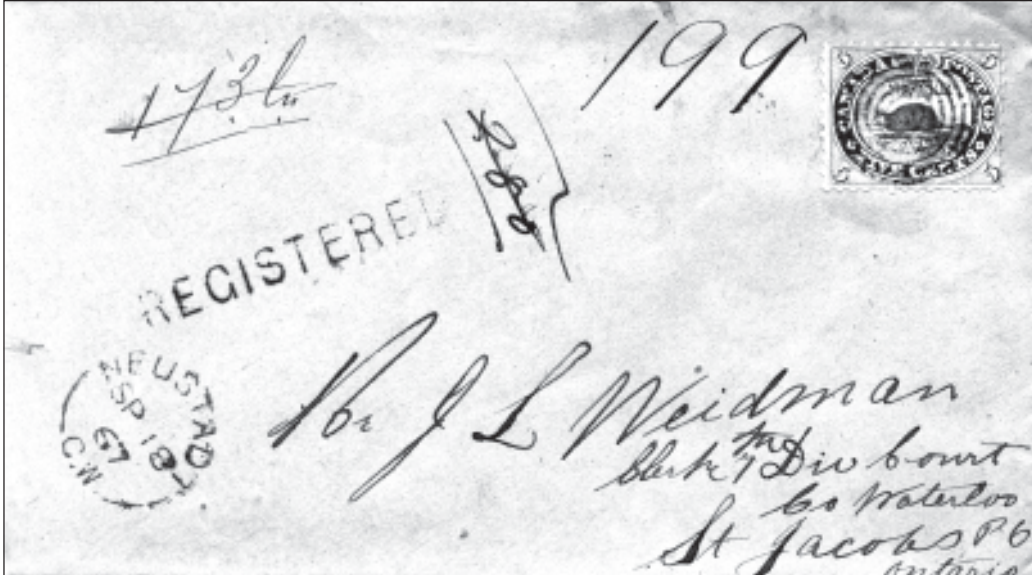 199
173
Regd
CANADA POSTAGE
FIVE CENTS
5 5
5 5
REGISTERED
NEUSTADT
SP 18
67
C.W.
Mr J L Weidman
Clerk 7th Div Court
Co Waterloo
St Jacobs P O
Ontario